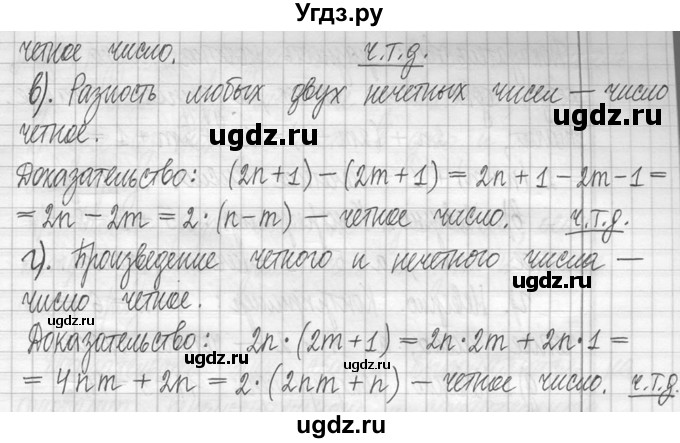 Угдз.ру
четное число. ч.т.д.
в). Разность любых двух нечетных чисел — число
четное.
ugdz.ru ugdz.ru
Доказательство: (2n+1) − (2m+1) = 2n + 1 − 2m − 1 =
= 2n − 2m = 2·(n−m) — четное число. ч.т.д.
ugdz.ru
г). Произведение четного и нечетного числа —
число четное.
ugdz.ru
Доказательство: 2n·(2m+1) = 2n·2m + 2n·1 =
ugdz.ru ugdz.ru
= 4nm + 2n = 2·(2nm+n) — четное число. ч.т.д.
ugdz.ru